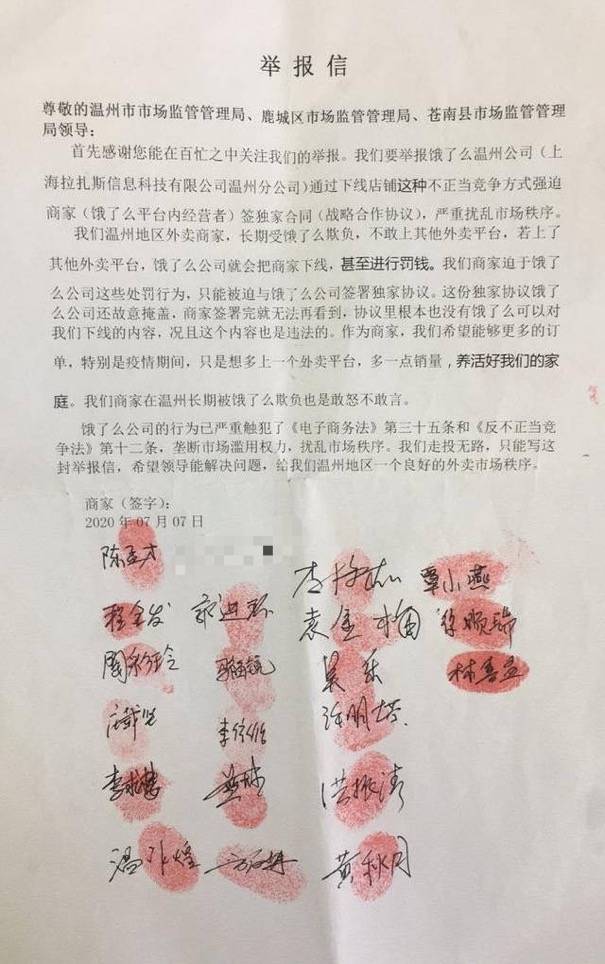 举报信
尊敬的温州市市场监管管理局、鹿城区市场监管管理局、苍南县市场监管管理
局领导:
首先感谢您能在百忙之中关注我们的举报。我们要举报饿了么温州公司(上
海拉扎斯信息科技有限公司温州分公司)通过下线店铺这种不正当竞争方式强迫
商家(饿了么平台内经营者)签独家合同(战略合作协议),严重扰乱市场秩序。
我们温州地区外卖商家,长期受饿了么欺负,不敢上其他外卖平台,若上了
其他外卖平台,饿了么公司就会把商家下线,甚至进行罚钱。我们商家迫于饿了
么公司这些处罚行为,只能被迫与饿了么公司签署独家协议。这份独家协议饿了
么公司还故意掩盖,商家签署完就无法再看到,协议里根本也没有饿了么可以对
我们下线的内容,况且这个内容也是违法的。作为商家,我们希望能够更多的订
单,特别是疫情期间,只是想多上一个外卖平台,多一点销量,养活好我们的家
庭。我们商家在温州长期被饿了么欺负也是敢怒不敢言。
饿了么公司的行为已严重触犯了《电子商务法》第三十五条和《反不正当竞
争法》第十二条,垄断市场滥用权力,扰乱市场秩序。我们走投无路,只能写这
封举报信,希望领导能解决问题,给我们温州地区一个良好的外卖市场秩序。
商家(签字):
2020年07月07日
覃小燕
程金发
袁金梅
徐顺瑞
吴乐
林喜孟
洪振涛
黄秋月